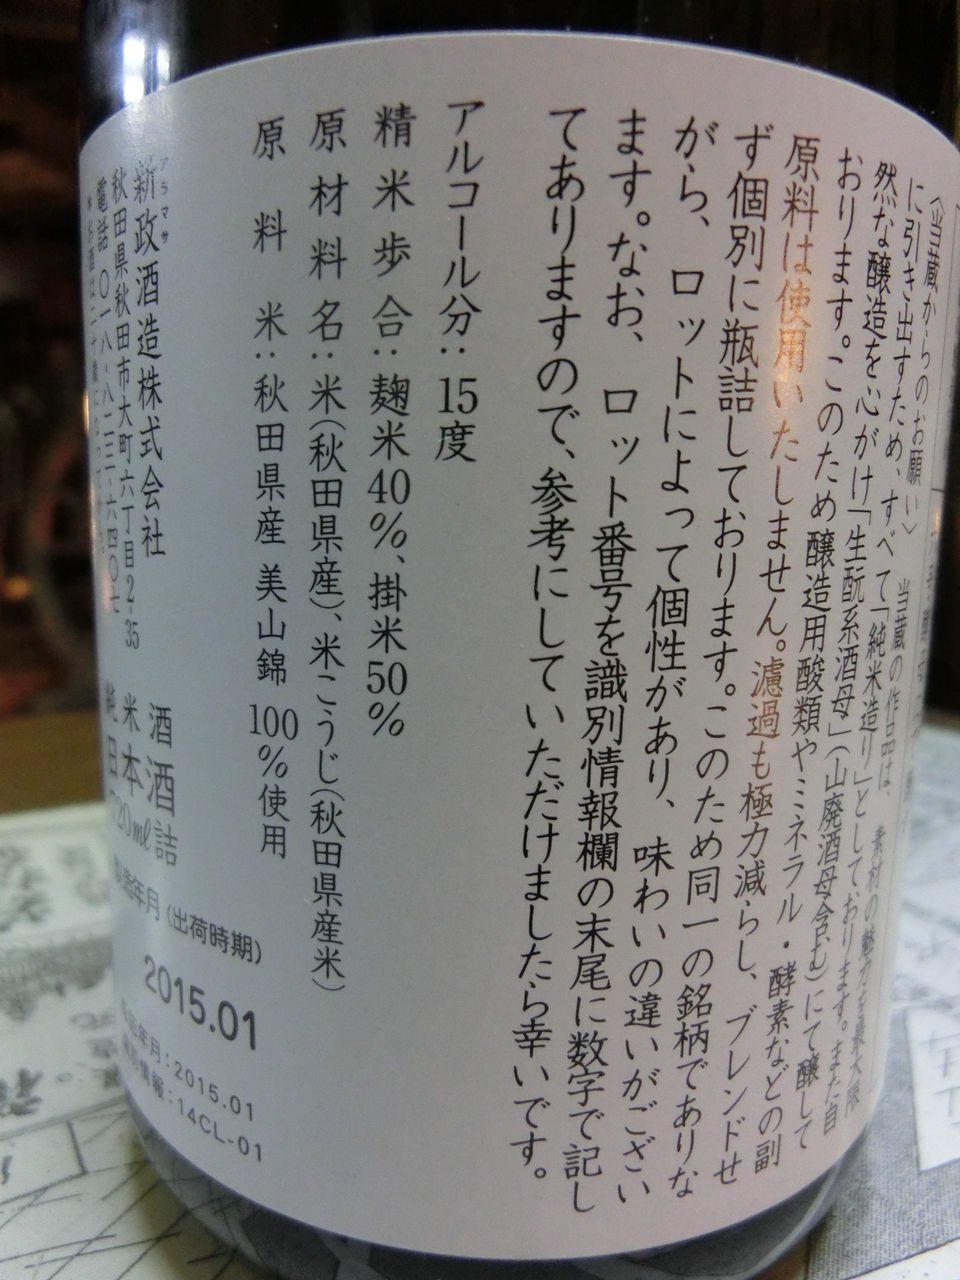 〈当蔵からのお願い〉 当蔵の作品は、素材の魅力を最大限
に引き出すため、すべて「純米造り」としております。また自
然な醸造を心がけ「生酛系酒母」(山廃酒母含む)にて醸して
おります。このため醸造用酸類やミネラル・酵素などの副
原料は使用いたしません。濾過も極力減らし、ブレンドせ
ず個別に瓶詰しております。このため同一の銘柄でありな
がら、ロットによって個性があり、味わいの違いがござい
ます。なお、ロット番号を識別情報欄の末尾に数字で記し
てありますので、参考にしていただけましたら幸いです。
アルコール分:15度
精米歩合:麹米40%、掛米50%
原材料名:米(秋田県産)、米こうじ(秋田県産米)
原料米:秋田県産 美山錦 100%使用
アラマサ
新政酒造株式会社
秋田県秋田市大町六丁目2-35
電話 〇一八-八二三-六四〇七
純米酒
日本酒
720ml詰
製造年月(出荷時期)
2015.01
年月:2015.01
情報:14CL-01